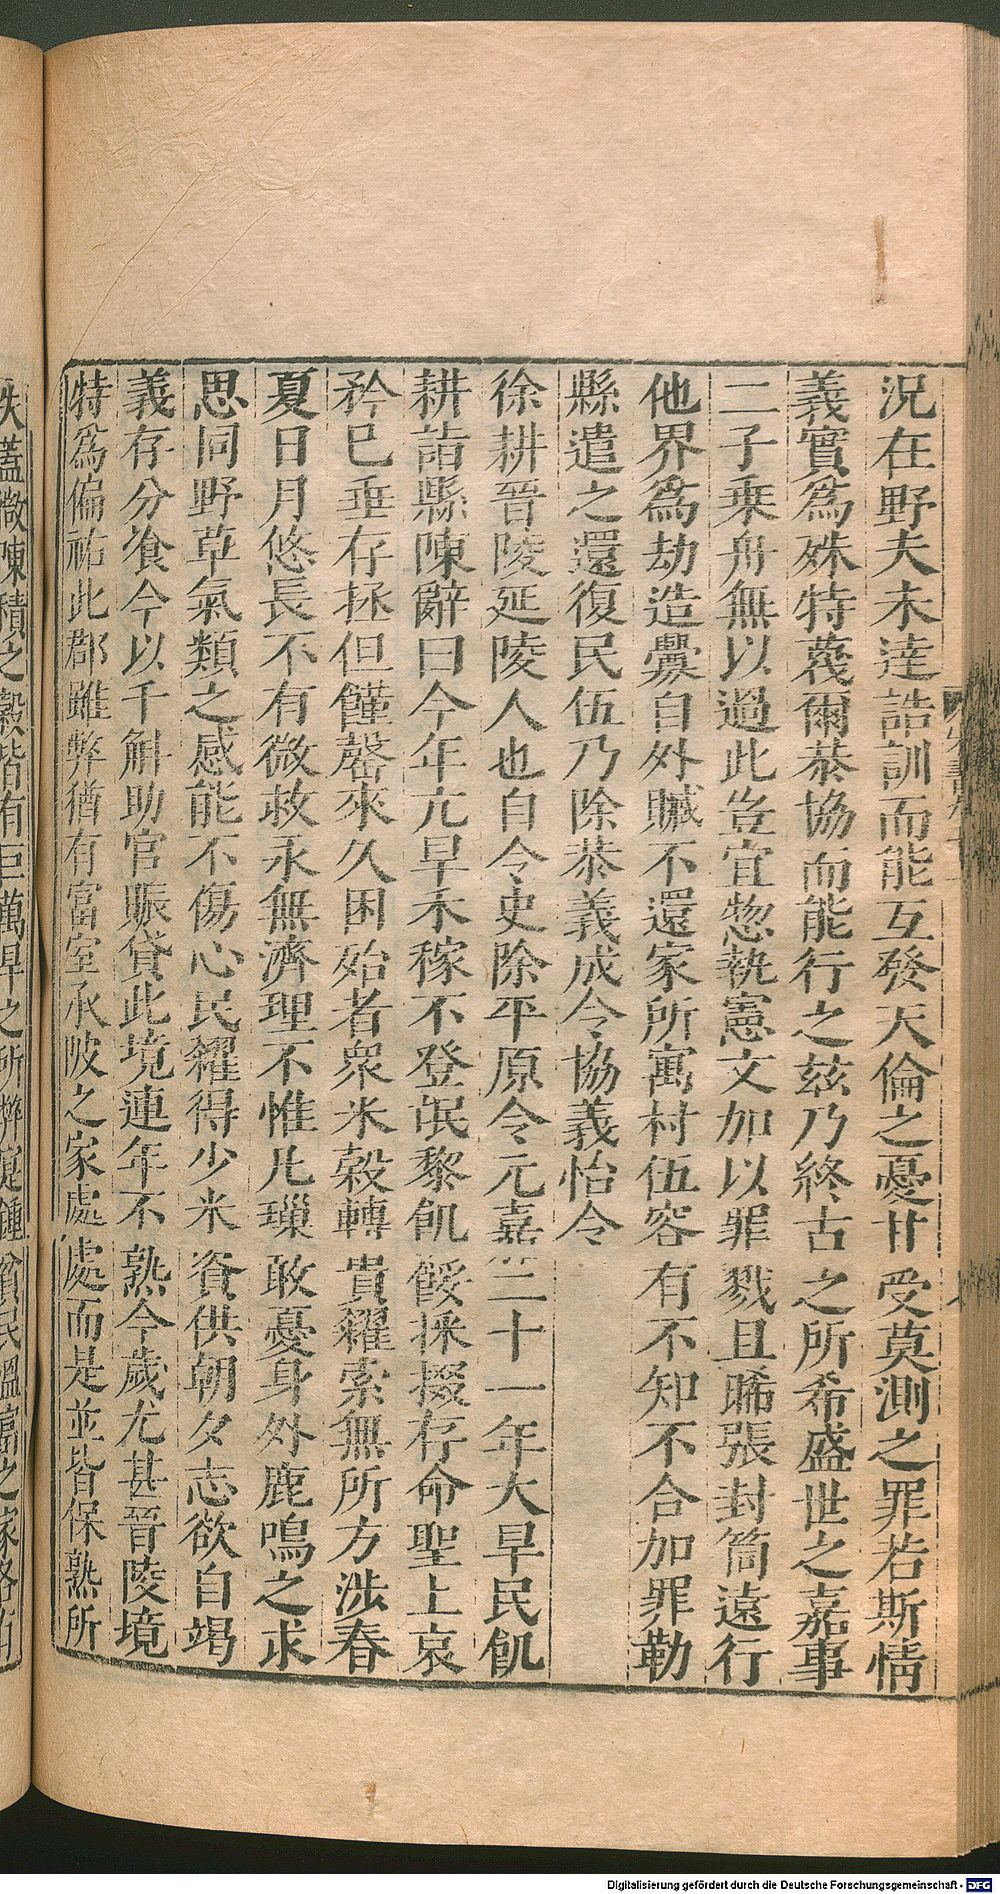 況在野夫未達誥訓而能互發天倫之憂甘受莫測之罪若斯情
義實爲殊特蔑爾恭協而能行之茲乃終古之所希盛世之嘉事
二子乗舟無以過此豈宜惣執憲文加以罪戮且睎張封筒遠行
他界爲劫造釁自外贜不還家所寓村伍容有不知不合加罪勒
縣遣之還復民伍乃除恭義成令協義怡令
徐耕晉陵延陵人也自令史除平原令元嘉二十一年大旱民飢
耕詣縣陳辭曰今年亢旱禾稼不登氓黎飢餒採掇存命聖上哀
矜已垂存拯但饉罄來久困殆者衆米榖轉貴糴索無所方涉春
夏日月悠長不有微救永無濟理不惟凡璅敢憂身外鹿鳴之求
思同野草氣類之感能不傷心民糴得少米資供朝夕志欲自竭
義存分飡今以千斛助官賑貸此境連年不熟今歲尤甚晉陵境
特爲偏祐此郡雖弊猶有富室承陂之家處處而是並皆保熟所
陳積之穀皆有巨萬旱之所弊寔鍾貧民溫富之家各有
Digitalisierung gefördert durch die Deutsche Forschungsgemeinschaft - DFG